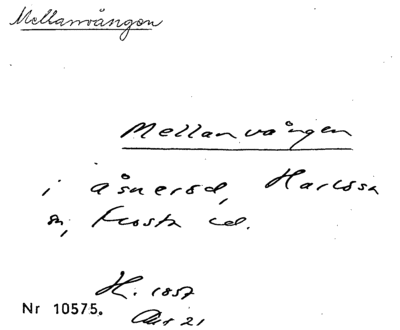 Mellanvången
Mellanvången
i Åsneröd, Harlösa
sn, Frosta hd.
H. 1857
Akt 21
Nr 10575.